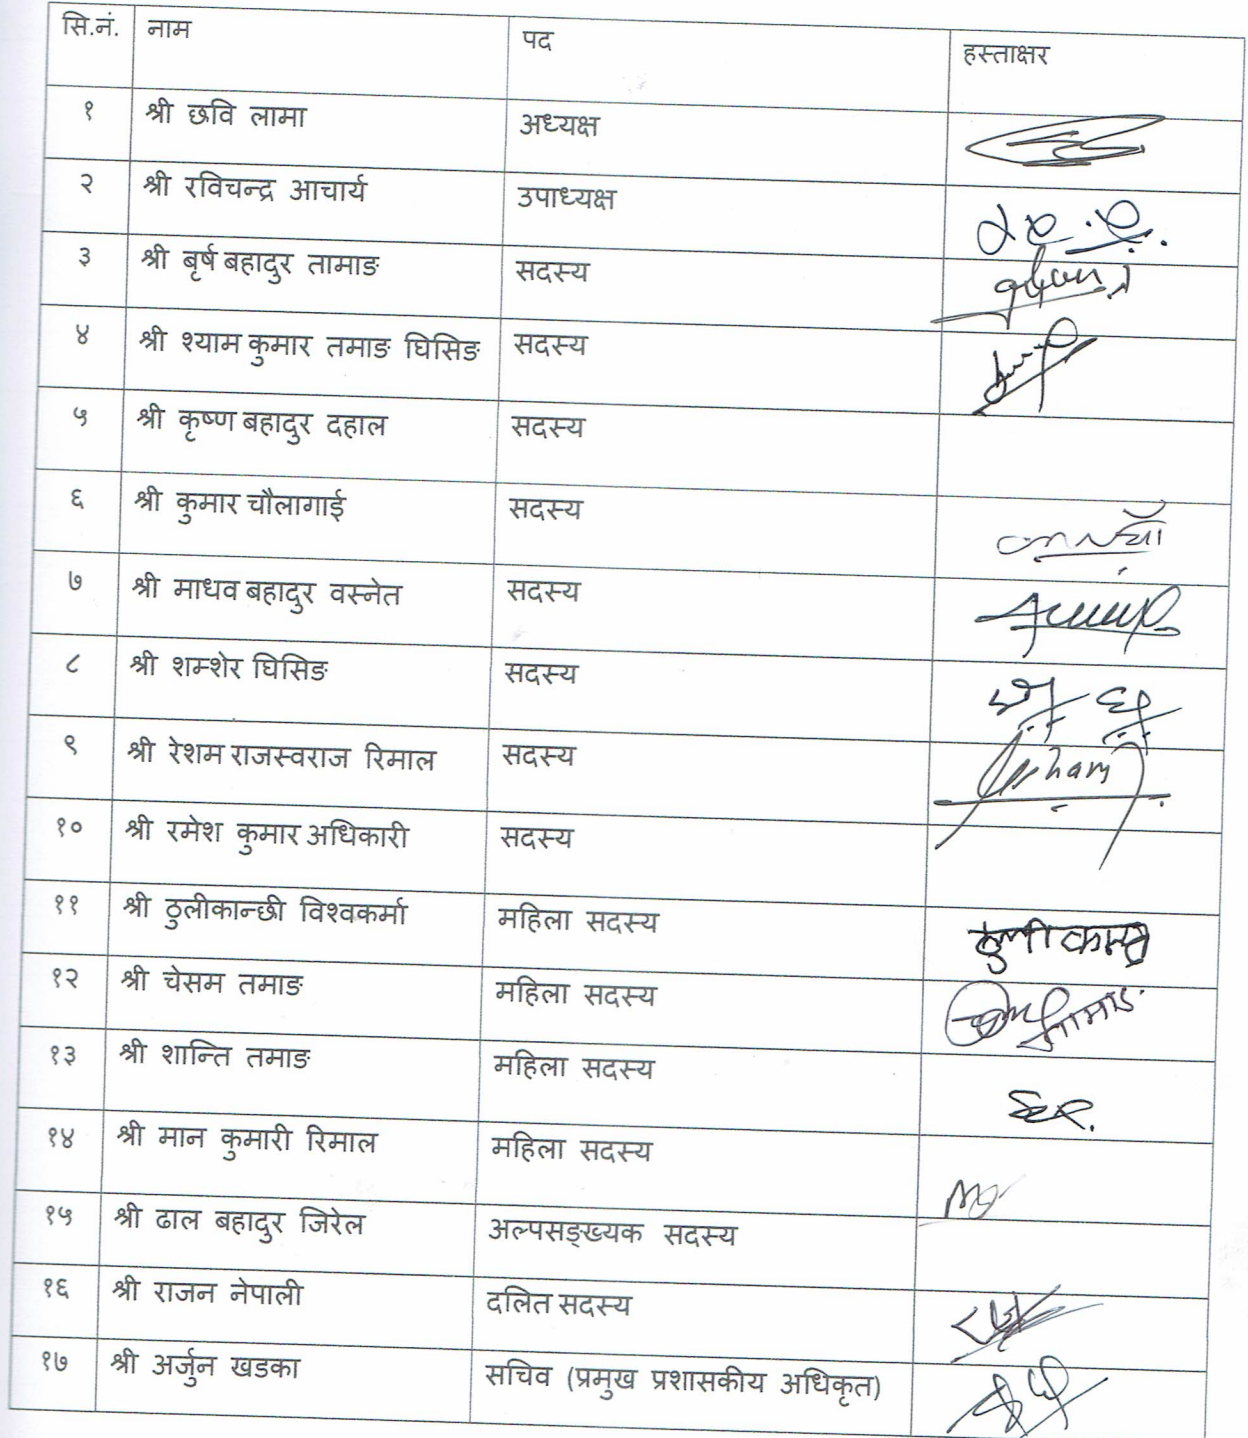 सि.नं. नाम पद हस्ताक्षर
१ श्री छवि लामा अध्यक्ष
२ श्री रविचन्द्र आचार्य उपाध्यक्ष
३ श्री बृर्ष बहादुर तामाङ सदस्य
४ श्री श्याम कुमार तमाङ घिसिङ सदस्य
५ श्री कृष्ण बहादुर दहाल सदस्य
६ श्री कुमार चौलागाई सदस्य
७ श्री माधव बहादुर वस्नेत सदस्य
८ श्री शम्शेर घिसिङ सदस्य
९ श्री रेशम राजस्वराज रिमाल सदस्य
१० श्री रमेश कुमार अधिकारी सदस्य
११ श्री ठुलीकान्छी विश्वकर्मा महिला सदस्य
१२ श्री चेसम तमाङ महिला सदस्य
१३ श्री शान्ति तमाङ महिला सदस्य
१४ श्री मान कुमारी रिमाल महिला सदस्य
१५ श्री ढाल बहादुर जिरेल अल्पसङ्ख्यक सदस्य
१६ श्री राजन नेपाली दलित सदस्य
१७ श्री अर्जुन खडका सचिव (प्रमुख प्रशासकीय अधिकृत)